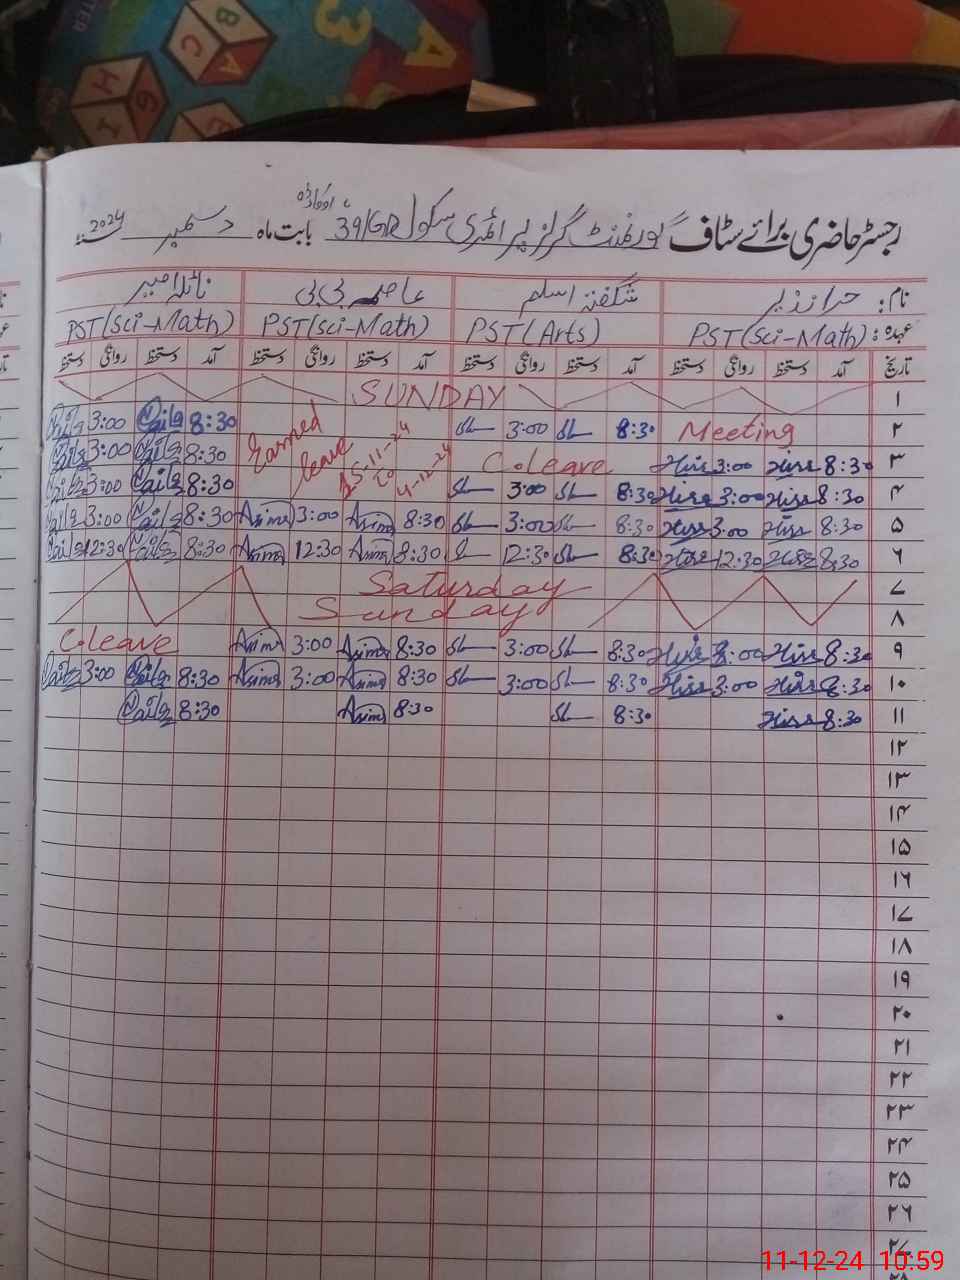 رجسٹر حاضری برائے سٹاف گورنمنٹ گرلز پرائمری سکول 39/GD اوکاڑہ بابت ماہ دسمبر 2024
نام: حرا نذیر شگفتہ اسلم عاصمہ بی بی نائلہ امیر
عہدہ: PST(Sci-Math) PST(Arts) PST(Sci-Math) PST(Sci-Math)
تاریخ آمد دستخط روانگی دستخط آمد دستخط روانگی دستخط آمد دستخط روانگی دستخط آمد دستخط روانگی دستخط
۱ SUNDAY
۲ Meeting 8:30 3:00 Earned leave 25-11-24 to 4-12-24 8:30 3:00
۳ 8:30 Hira 3:00 Hira C.leave 8:30 3:00
۴ 8:30 Hira 3:00 Hira 8:30 3:00 8:30 3:00
۵ 8:30 Hira 3:00 Hira 8:30 3:00 8:30 Asima 3:00 Asima 8:30 3:00
۶ 8:30 Hira 12:30 Hira 8:30 12:30 8:30 Asima 12:30 Asima 8:30 12:30
۷ Saturday
۸ Sunday
۹ 8:30 Hira 3:00 Hira 8:30 3:00 8:30 Asima 3:00 Asima C.leave
۱۰ 8:30 Hira 3:00 Hira 8:30 3:00 8:30 Asima 3:00 Asima 8:30 3:00
۱۱ 8:30 Hira 8:30 8:30 Asima 8:30
۱۲
۱۳
۱۴
۱۵
۱۶
۱۷
۱۸
۱۹
۲۰
۲۱
۲۲
۲۳
۲۴
۲۵
۲۶
۲۷
11-12-24 10:59